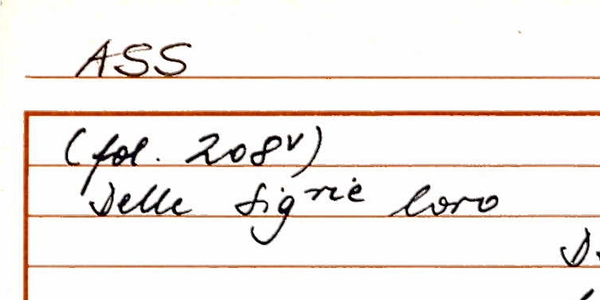 ASS
(fol. 208v)
Delle Sigrie loro
D.